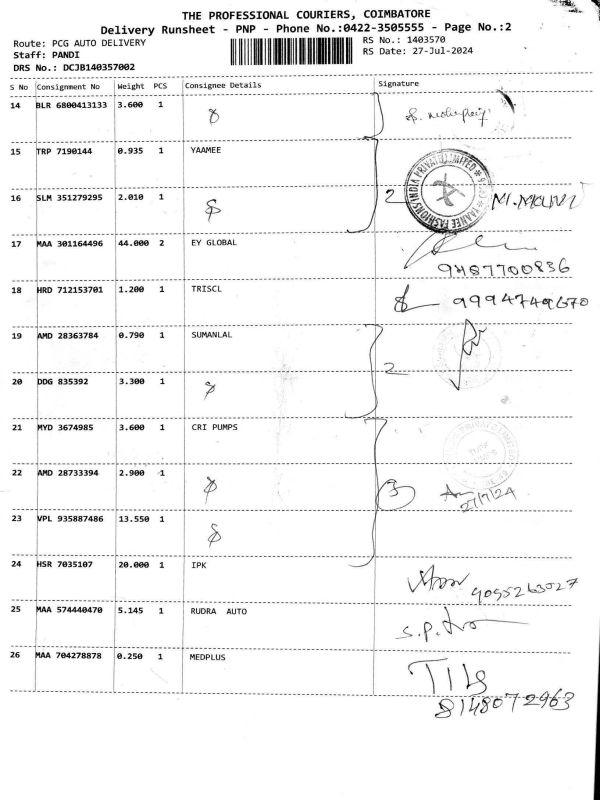 THE PROFESSIONAL COURIERS, COIMBATORE
Delivery Runsheet - PNP - Phone No.:0422-3505555 - Page No.:2
Route: PCG AUTO DELIVERY RS No.: 1403570
Staff: PANDI RS Date: 27-Jul-2024
DRS No.: DCJB140357002
S No Consignment No Weight PCS Consignee Details Signature
14 BLR 6800413133 3.600 1
15 TRP 7190144 0.935 1 YAAMEE
16 SLM 351279295 2.010 1 2
17 MAA 301164496 44.000 2 EY GLOBAL
9487700836
18 HRD 712153701 1.200 1 TRISCL 9994749670
19 AMD 28363784 0.790 1 SUMANLAL
2
20 DDG 835392 3.300 1
21 MYD 3674985 3.600 1 CRI PUMPS
22 AMD 28733394 2.900 1 3
27/7/24
23 VPL 935887486 13.550 1
24 HSR 7035107 20.000 1 IPK
9095263027
25 MAA 574440470 5.145 1 RUDRA AUTO
26 MAA 704278878 0.250 1 MEDPLUS
8148072963